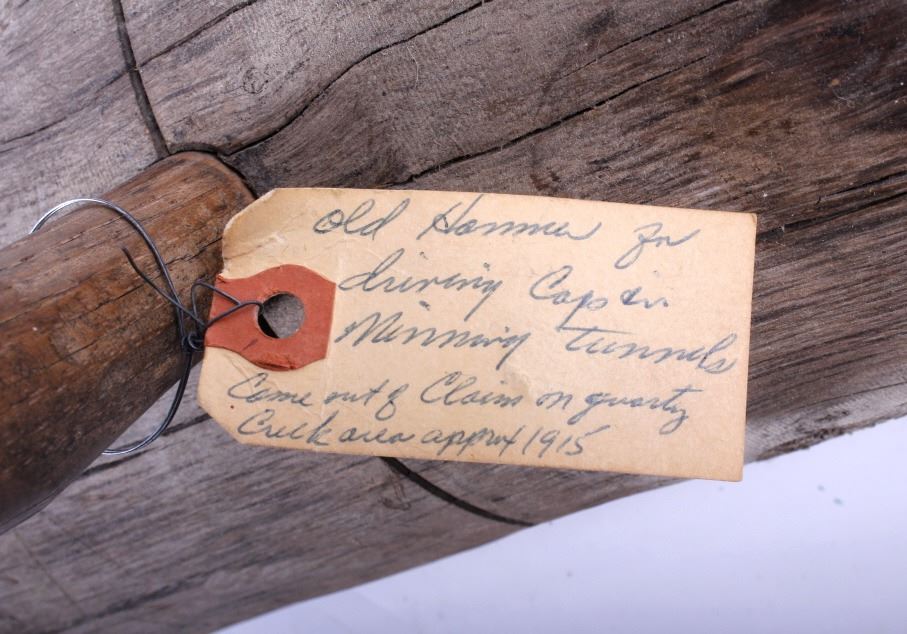 Old Hammer for
driving Caps in
Minning tunnels
Came out of Claim on quartz
Creek area approx 1915